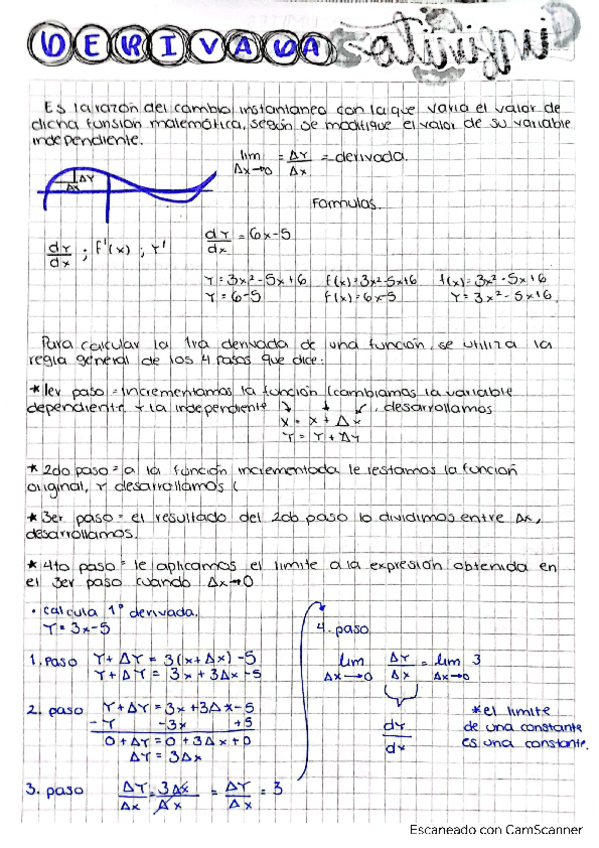 DERIVADA
Es la razón del cambio instantaneo con la que varia el valor de
dicha funsión matemática, según se modifique el valor de su variable
independiente.
lim ΔY/Δx = derivada.
Δx→0
ΔY
Δx
Formulas.
dY/dx ; f'(x) ; Y'
dY/dx = 6x-5
Y = 3x²-5x+6 f(x)=3x²-5x+6 f(x)=3x²-5x+6
Y = 6-5 f(x)=6x-5 Y = 3x²-5x+6
Para calcular la 1ra derivada de una función, se utiliza la
regla general de los 4 pasos que dice:
*1er paso = incrementamos la función (cambiamos la variable
dependiente y la independiente ↘ ↓ ↙. desarrollamos
x = x + Δx
Y = Y + ΔY
* 2do paso = a la función incrementada le restamos la función
original, Y desarrollamos (
* 3er paso = el resultado del 2do paso lo dividimos entre Δx,
desarrollamos.
* 4to paso = le aplicamos el limite a la expresión obtenida en
el 3er paso cuando Δx→0
· calcula 1° derivada.
Y = 3x-5
1. paso Y+ΔY = 3(x+Δx)-5
Y+ΔY = 3x+3Δx-5
2. paso Y+ΔY = 3x+3Δx-5
-Y -3x +5
0+ΔY = 0+3Δx+0
ΔY = 3Δx
3. paso ΔY/Δx = 3Δx/Δx = ΔY/Δx = 3
4. paso
lim ΔY/Δx = lim 3
Δx→0 Δx→0
dY/dx
*el limite
de una constante
es una constante.
Escaneado con CamScanner